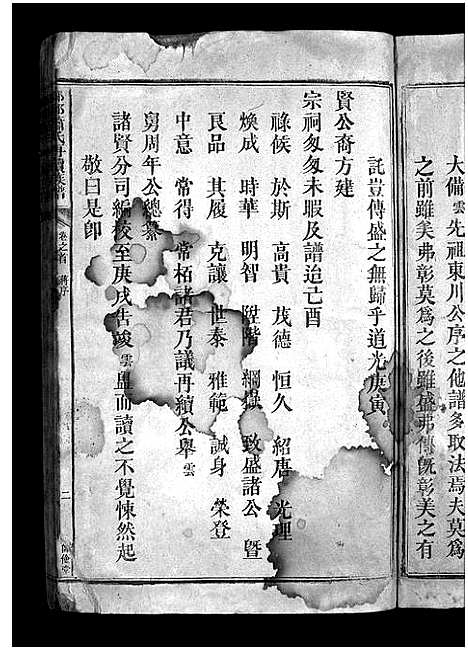 大備雲先祖東川公序之他譜多取法焉夫莫為
之前雖美弗彰莫為之後雖盛弗傳旣彰美之有
託豈傳盛之無歸乎道光庚寅
賢公裔方建
宗祠匆匆未暇及譜迨亡酉
祿候 於斯 高貴 茂德 恒久 紹唐 光理
煥成 時華 明智 陞階 綱嶽 致盛諸公曁
良品 其履 克讓 世泰 雅範 誠身 榮登
中意 常得 常栢諸君乃議再續公舉雲
舅周年公總纂
諸賢分司編校至庚戌告竣雲盥而讀之不覺悚然起
敬曰是卽
氏 族譜 卷之首 蔣序 二